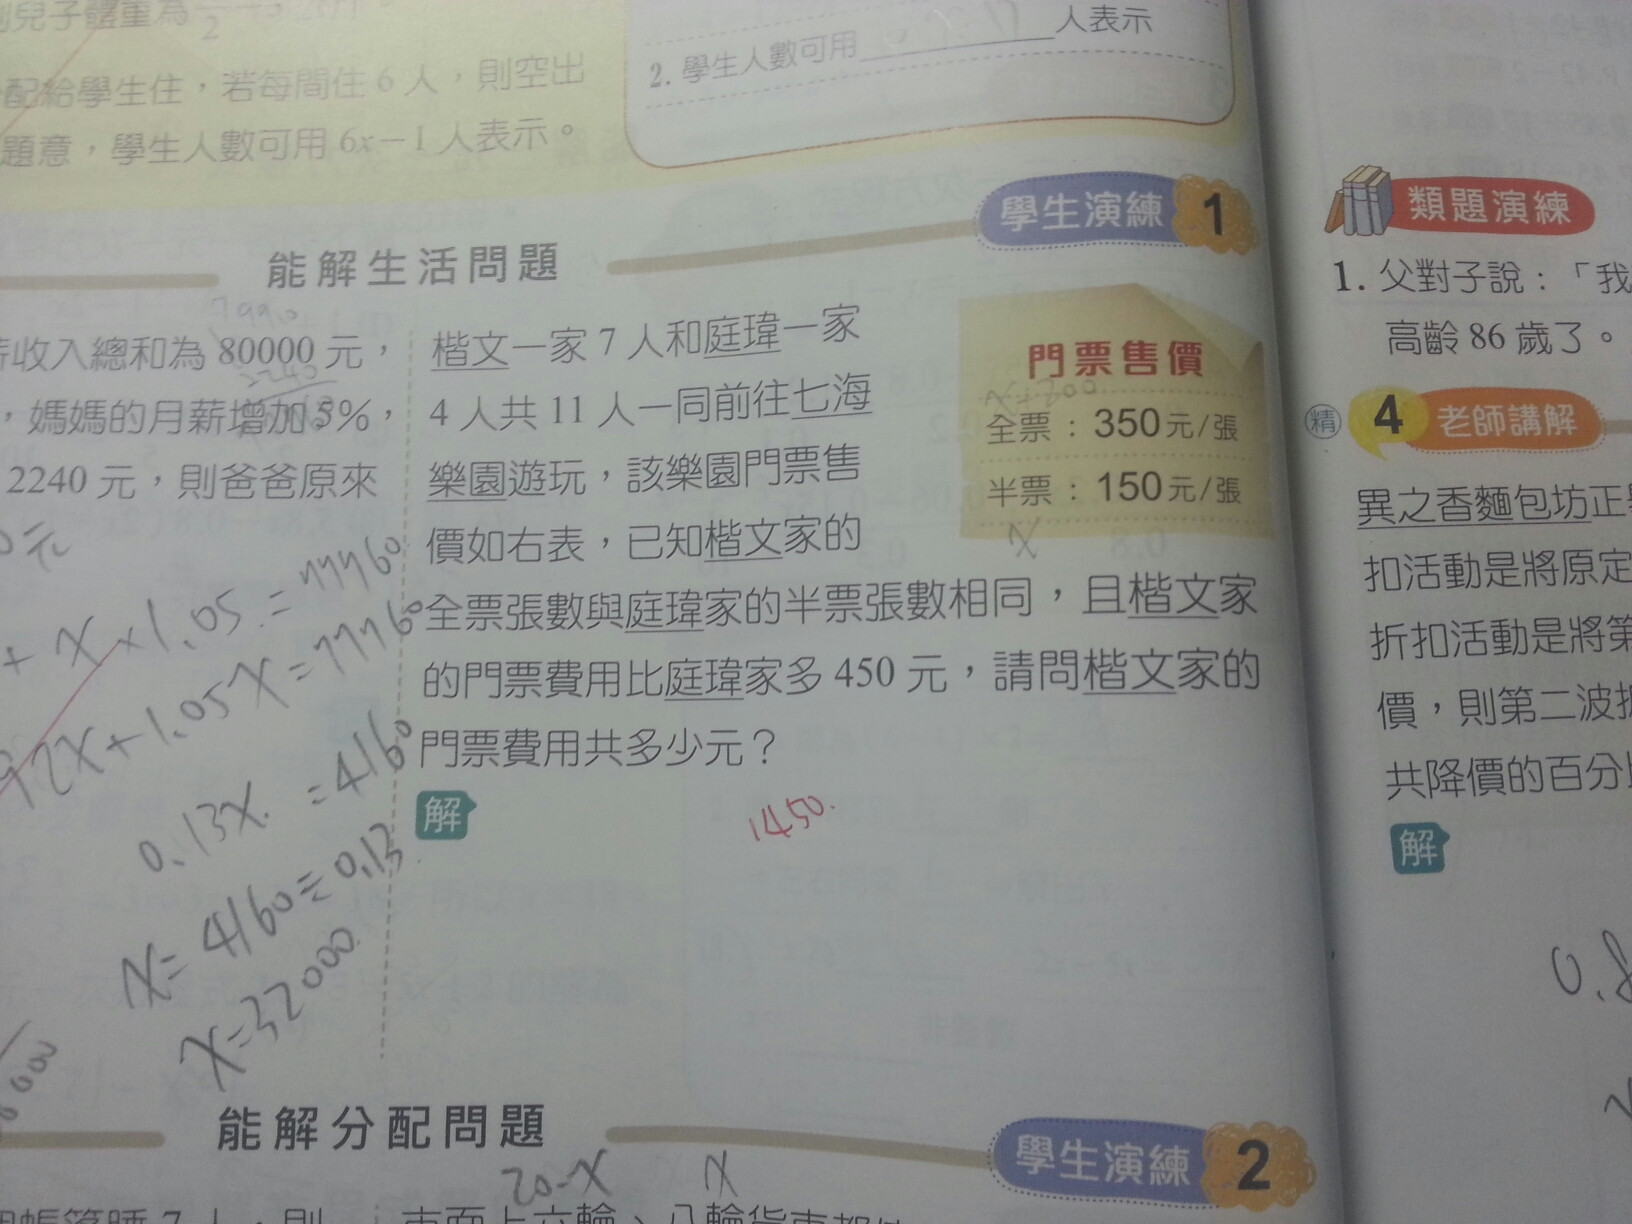 配給學生住，若每間住6人，則空出
題意，學生人數可用6x－1人表示。
人表示
2. 學生人數可用
學生演練 1
能解生活問題
79990
收入總和為80000元，
，媽媽的月薪增加5%，
2240元，則爸爸原來
0元
+ x×1.05=77760
92x+1.05x=77760
0.13x=4160
x=4160÷0.13
x=32000
楷文一家7人和庭瑋一家
4人共11人一同前往七海
樂園遊玩，該樂園門票售
價如右表，已知楷文家的
全票張數與庭瑋家的半票張數相同，且楷文家
的門票費用比庭瑋家多450元，請問楷文家的
門票費用共多少元？
門票售價
x+200
全票：350元/張
半票：150元/張
x
解
1450.
能解分配問題
學生演練 2
20-x x
類題演練
1. 父對子說：「我
高齡86歲了。
精 4 老師講解
異之香麵包坊正
扣活動是將原定
折扣活動是將第
價，則第二波
共降價的百分
解
0.8